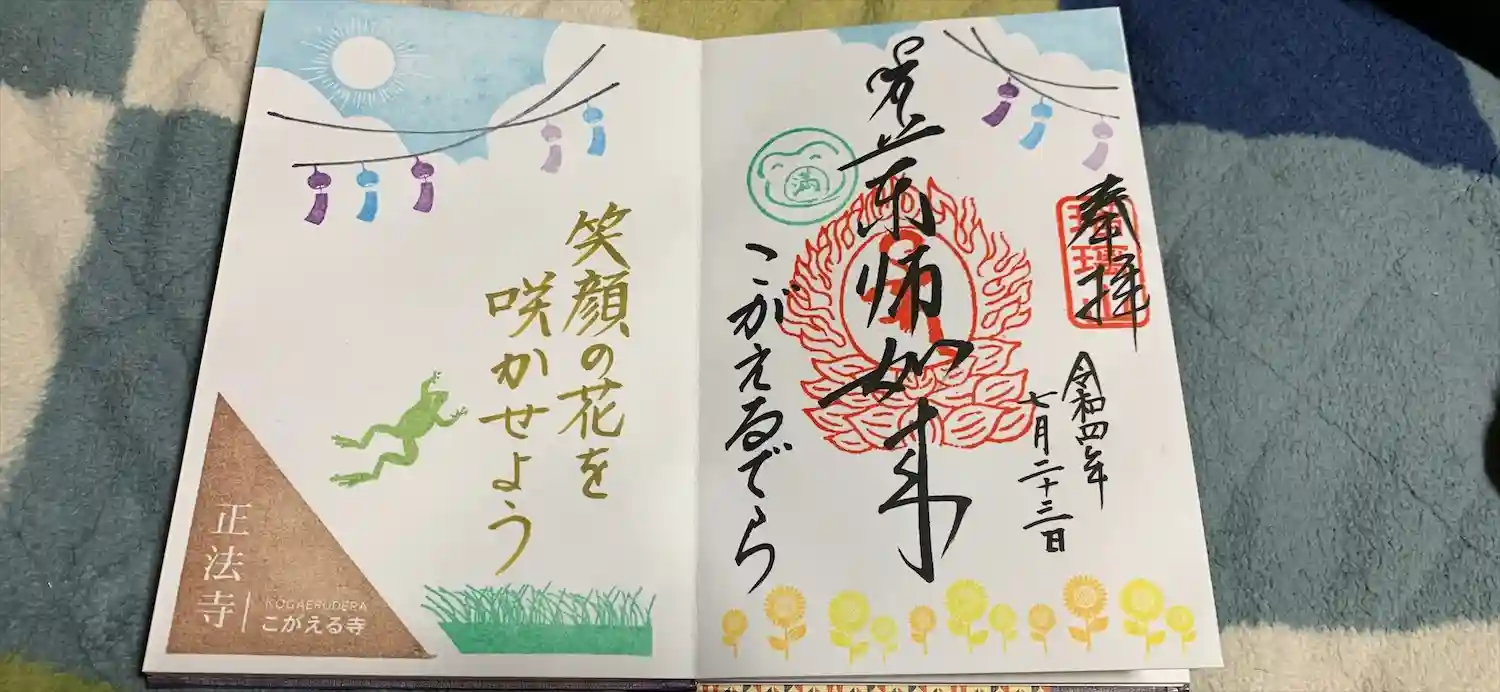 奉拝
瑠璃山
令和四年
七月二十三日
薬師如来
満
こがえるでら
笑顔の花を
咲かせよう
正法寺
KOGAERUDERA
こがえる寺